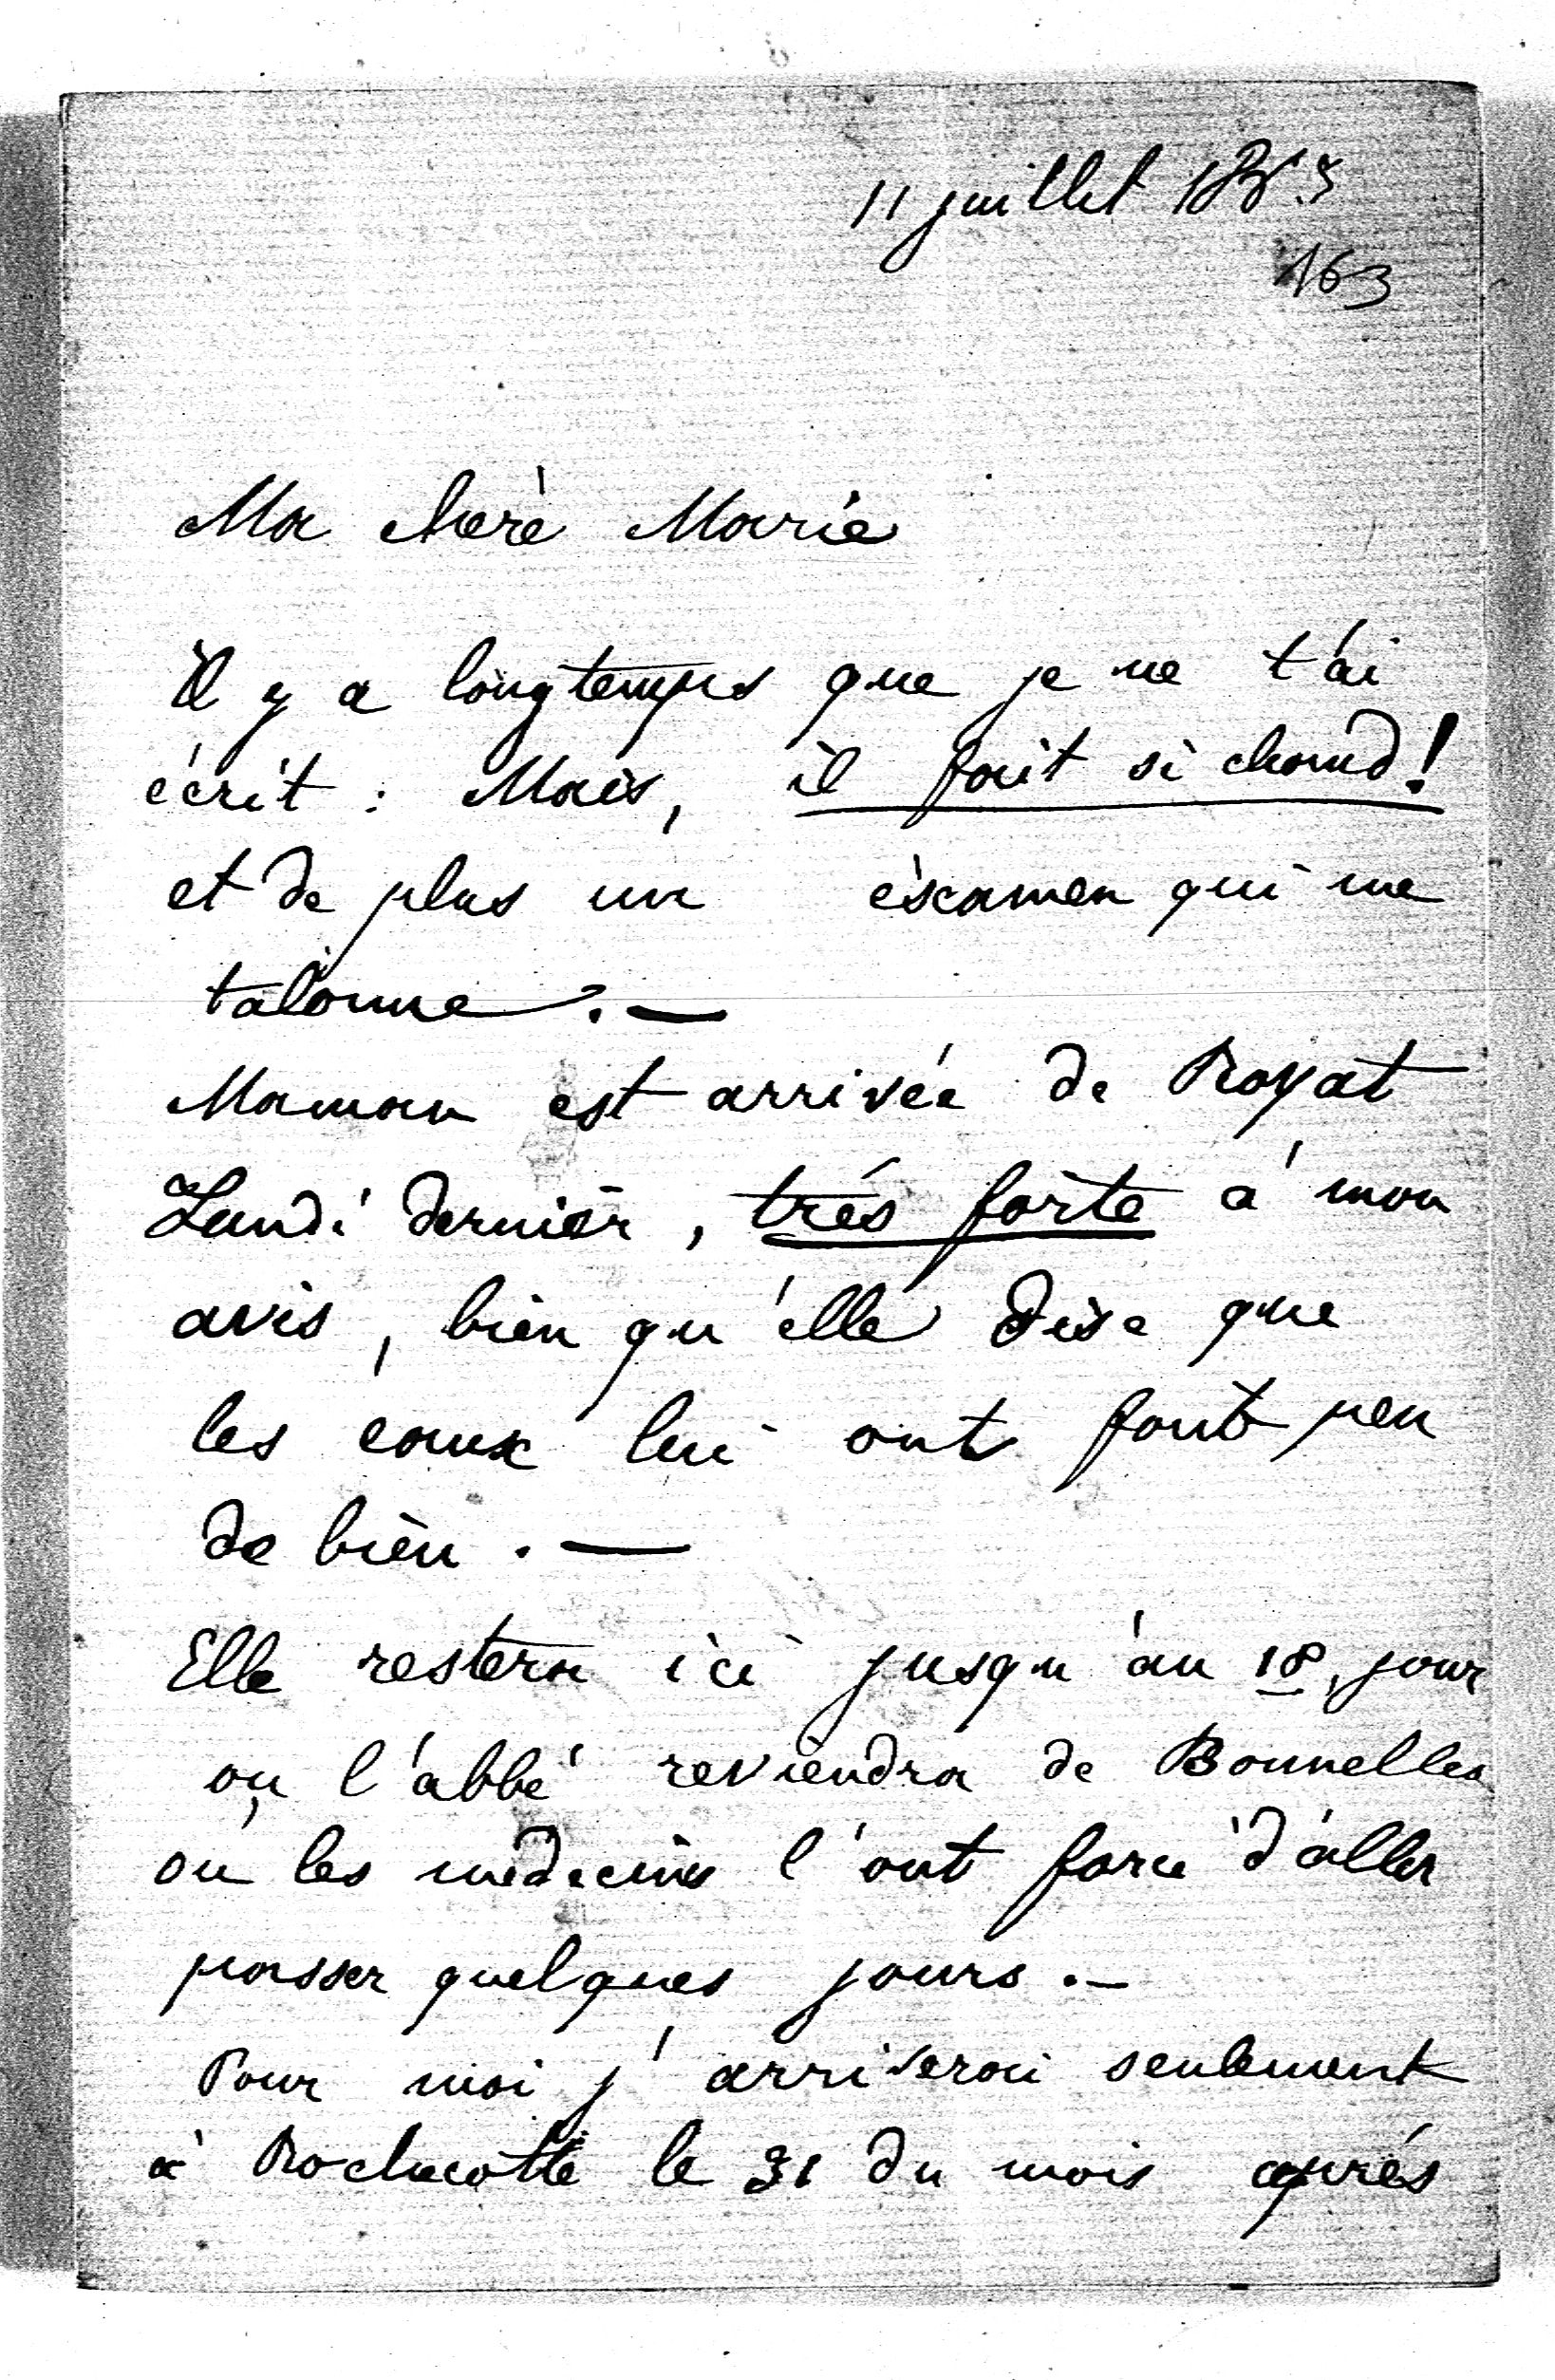 11 juillet 1883
163
Ma chère Marie
Il y a longtemps que je ne t'ai
écrit : Mais, il fait si chaud !
et de plus un éxamen qui me
talonne. —
Maman est arrivée de Royat
Lundi dernier, trés forte à mon
avis, bien qu'elle dise que
les eaux lui ont fait peu
de bien. —
Elle restera ici jusqu'au 18, jour
où l'abbé reviendra de Bonnelles
où les médecins l'ont forcé d'aller
passer quelques jours. —
Pour moi j'arriverai seulement
à Rochecotte le 31 du mois aprés